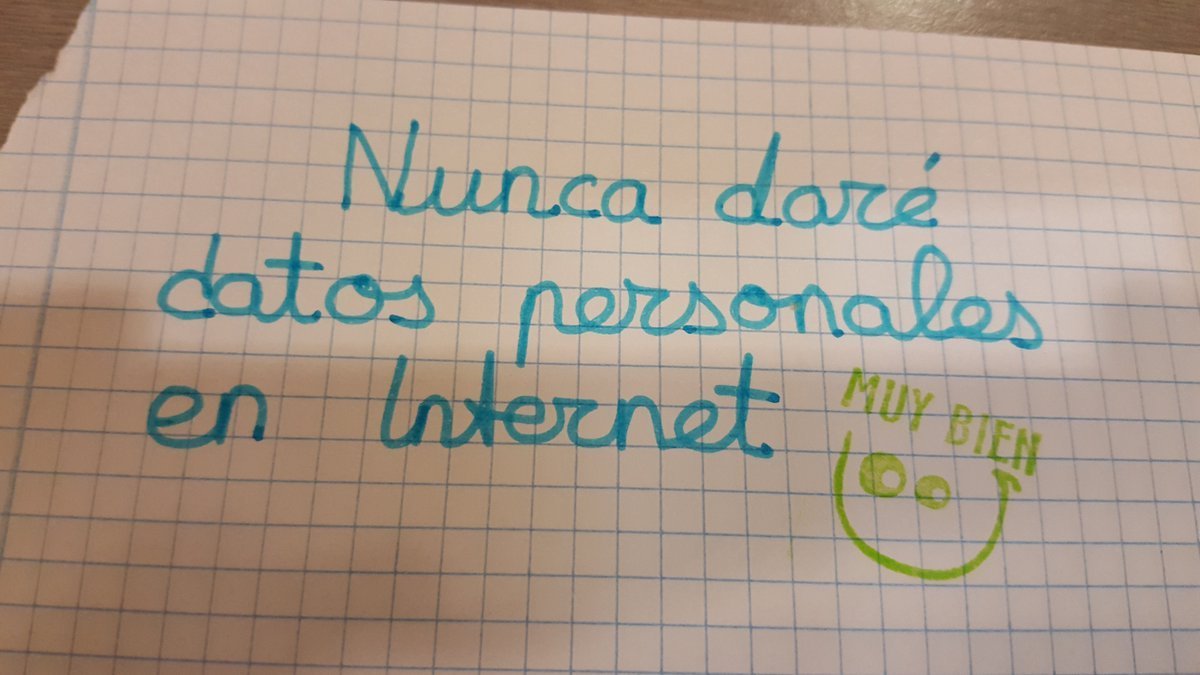 Nunca daré
datos personales
en Internet
MUY BIEN